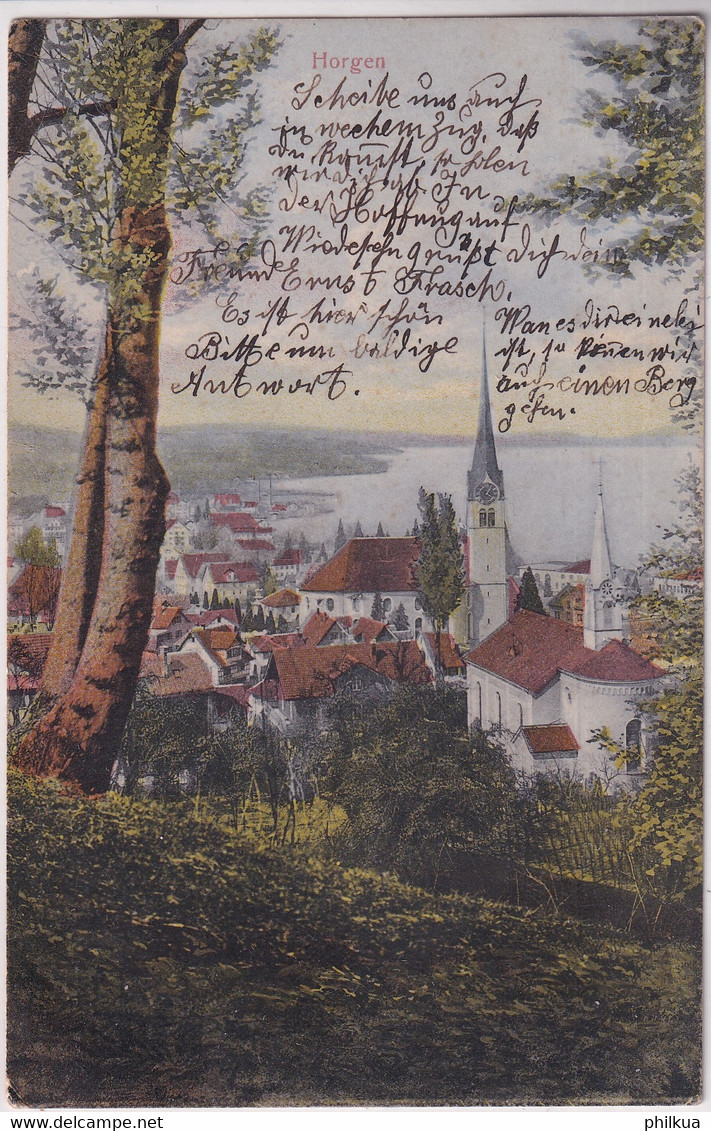 Horgen
Scheibe uns auch
in wechem Zug, daß
du kannst, so holen
wir dich ab In
der Hoffnug auf
Wiedesehn grüßt Dich dein
Freund Ernst Frasch.
Es ist hier schön
Bitte um baldige
Antwort.
Wan es dir einelei
ist, so könen wir
auch einen Berg
gehen.
© Delcampe.net
philkua